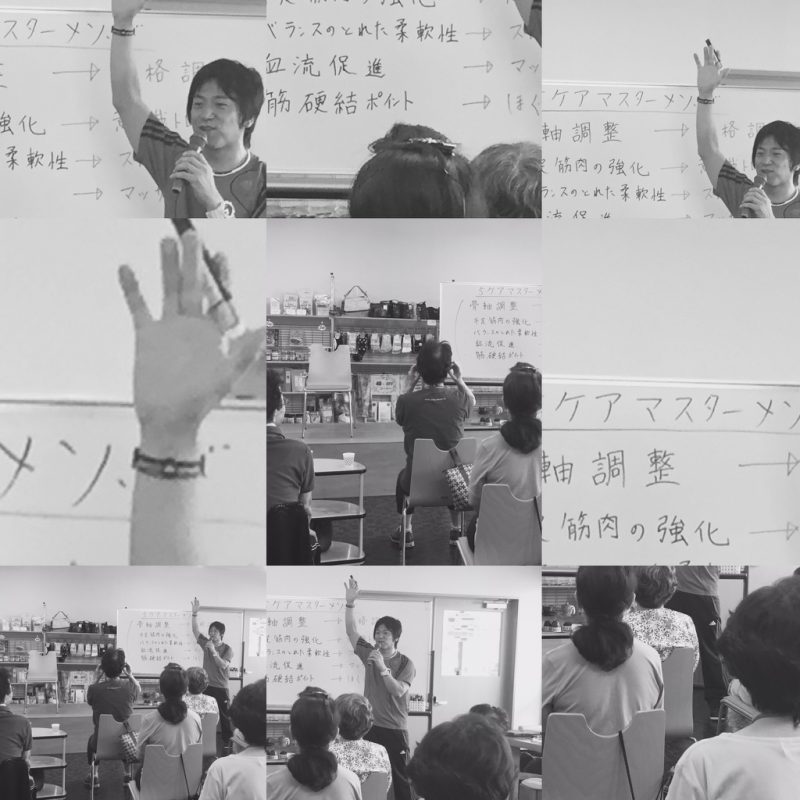 マスターメソ
→ 格調
強化 →
柔軟性 → ス
→ マッ
筋肉の強化 →
バランスのとれた柔軟性 → ス
血流促進 → マッ
筋硬結ポイント → ほぐ
ケアマスターメソ
軸調整 → 格調
筋肉の強化 →
ランスのとれた柔軟性 → ス
流促進 → マ
メソ
5ケアマスターメ
骨軸調整
不足筋肉の強化
バランスのとれた柔軟性
血流促進
筋硬結ポイント
ケアマスターメソ
軸調整 →
筋肉の強化 →
5ケアマスターメ
骨軸調整
不足筋肉の強化
バランスのとれた柔軟性
血流促進
筋硬結ポイント
ケアマスターメソ
軸調整
筋肉の強化
ンスのとれた柔軟性
流促進
硬結ポイント → ほ